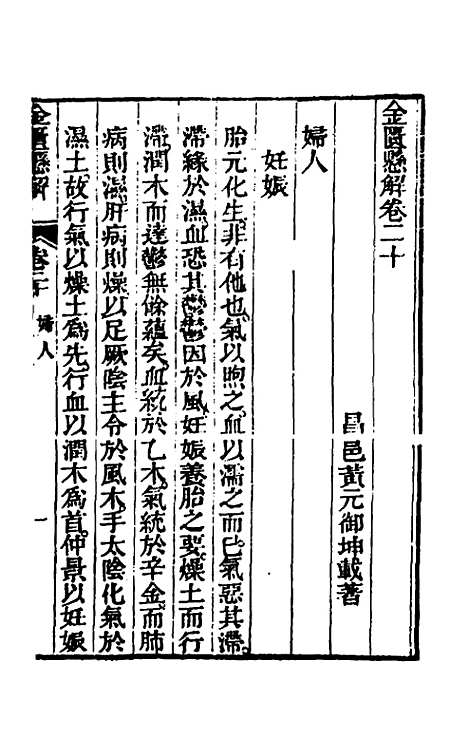 金匱懸解卷二十
昌邑黃元御坤載著
婦人
妊娠
胎元化生非有他也氣以煦之血以濡之而已氣惡其滯
滯緣於濕血恐其鬱鬱因於風妊娠養胎之要燥土而行
滯潤木而達鬱無餘蘊矣血統於乙木氣統於辛金而肺
病則濕肝病則燥以足厥陰主令於風木手太陰化氣於
濕土故行氣以燥土為先行血以潤木為首仲景以妊娠
金匱懸解 卷二十 婦人 一